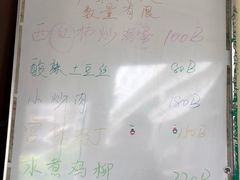 数量有限
西红柿炒鸡蛋 100B
酸辣土豆丝 80B
小炒肉 180B
宫保鸡丁 150B
水煮鸡柳 220B